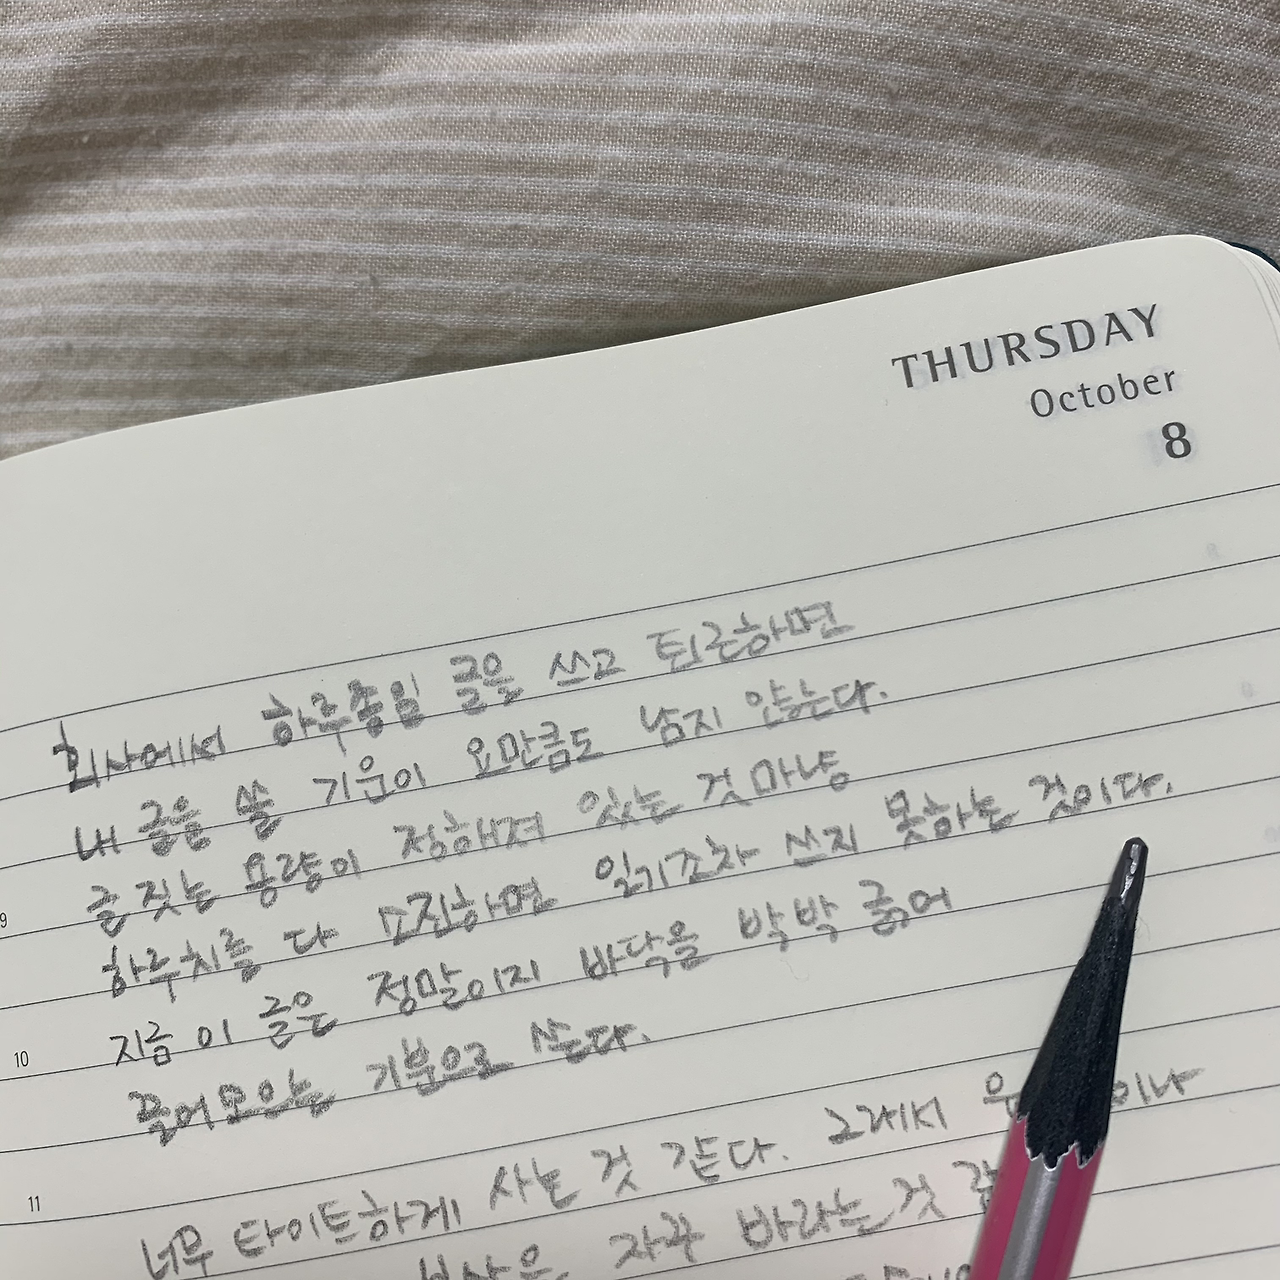 THURSDAY
October
8
회사에서 하루종일 글을 쓰고 퇴근하면
내 글을 쓸 기운이 요만큼도 남지 않는다.
글 짓는 용량이 정해져 있는 것 마냥
9
하루치를 다 소진하면 일기조차 쓰지 못하는 것이다.
지금 이 글은 정말이지 바닥을 박박 긁어
10
끌어모으는 기분으로 쓴다.
너무 타이트하게 사는 것 같다. 그래서
11
자꾸 바라는 것